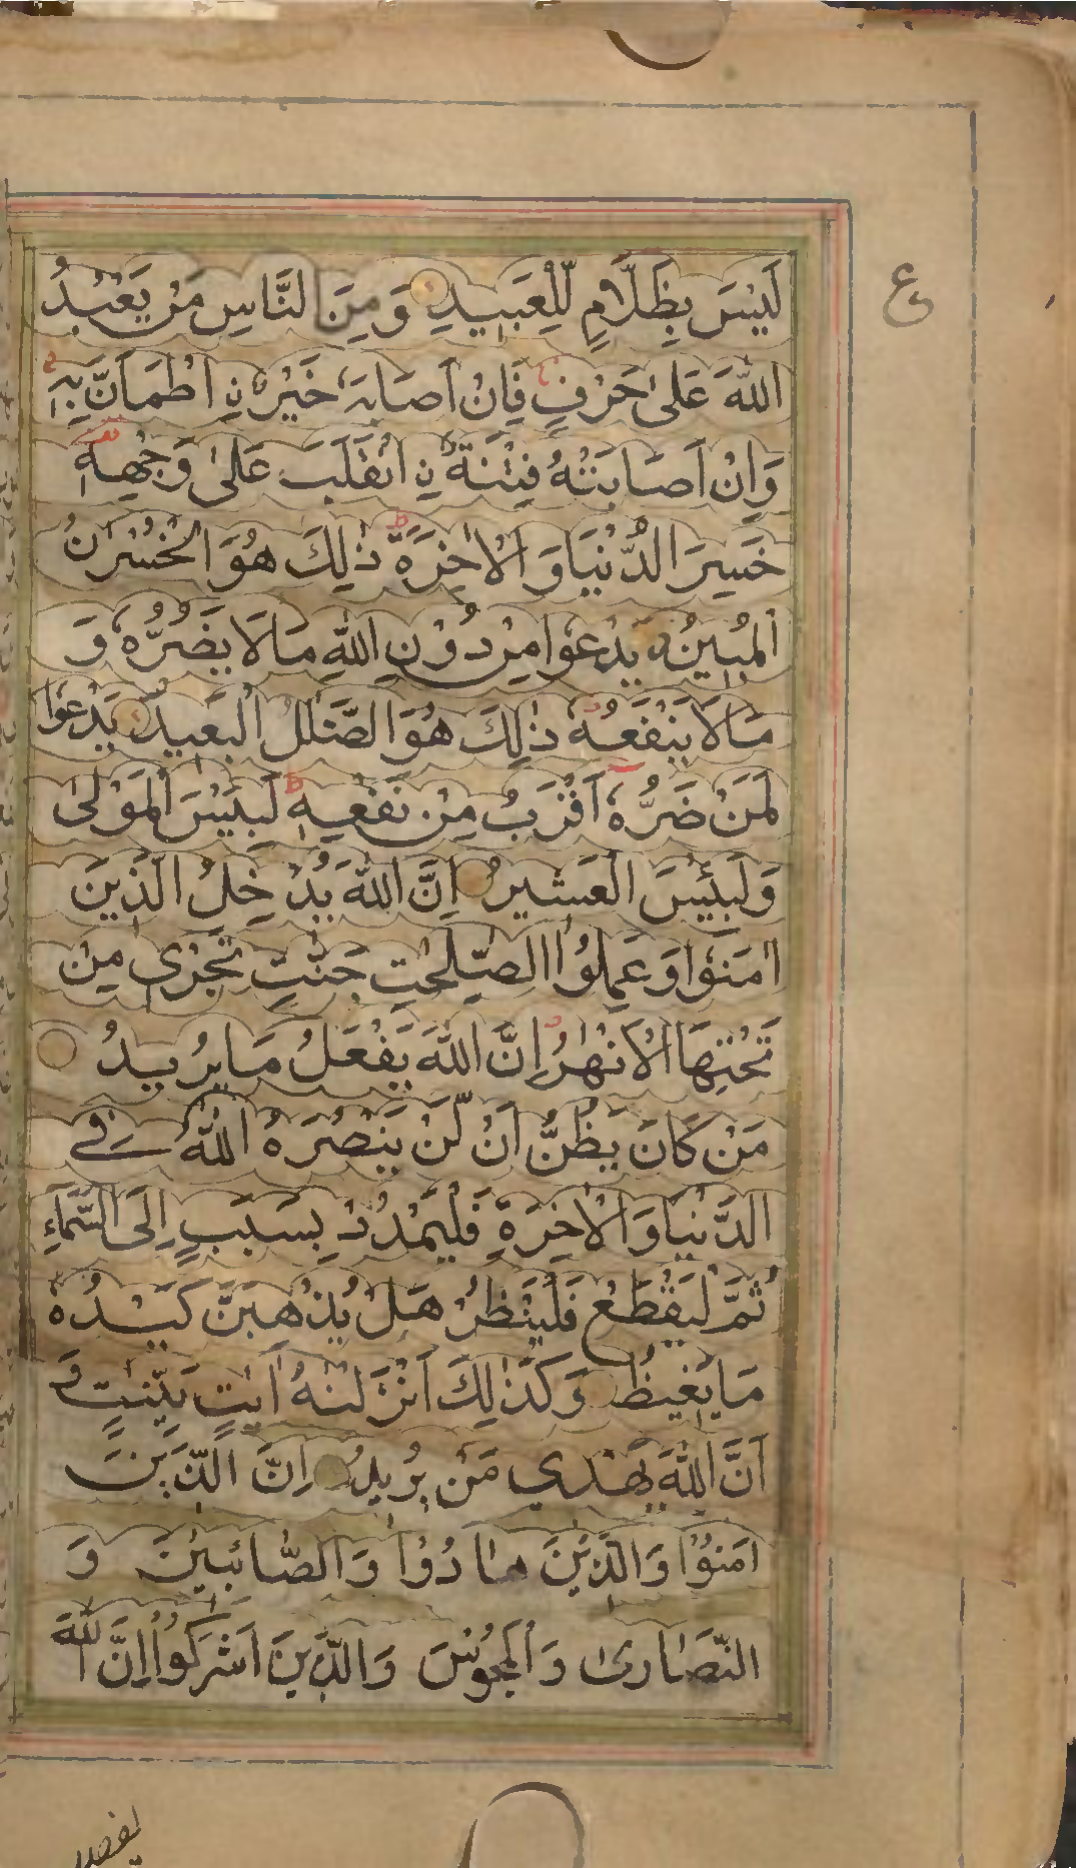 ع
لَيْسَ بِظَلَّامٍ لِّلْعَبِيدِ وَمِنَ النَّاسِ مَنْ يَعْبُدُ
اللّٰهَ عَلٰى حَرْفٍ فَاِنْ اَصَابَهٗ خَيْرُ ۨ اطْمَاَنَّ بِهٖ
وَاِنْ اَصَابَتْهُ فِتْنَةُ ۨ انْقَلَبَ عَلٰى وَجْهِهٖ
خَسِرَ الدُّنْيَا وَالْاٰخِرَةَ ذٰلِكَ هُوَ الْخُسْرٰنُ
الْمُبِيْنُ يَدْعُوْا مِنْ دُوْنِ اللّٰهِ مَا لَا يَضُرُّهٗ وَ
مَا لَا يَنْفَعُهٗ ذٰلِكَ هُوَ الضَّلٰلُ الْبَعِيْدُ يَدْعُوْا
لَمَنْ ضَرُّهٗٓ اَقْرَبُ مِنْ نَفْعِهٖ لَبِئْسَ الْمَوْلٰى
وَلَبِئْسَ الْعَشِيْرُ اِنَّ اللّٰهَ يُدْخِلُ الَّذِيْنَ
اٰمَنُوْا وَعَمِلُوا الصّٰلِحٰتِ جَنّٰتٍ تَجْرِىْ مِنْ
تَحْتِهَا الْاَنْهٰرُ اِنَّ اللّٰهَ يَفْعَلُ مَا يُرِيْدُ
مَنْ كَانَ يَظُنُّ اَنْ لَّنْ يَنْصُرَهُ اللّٰهُ فِے
الدُّنْيَا وَالْاٰخِرَةِ فَلْيَمْدُدْ بِسَبَبٍ اِلَى السَّمَآءِ
ثُمَّ لْيَقْطَعْ فَلْيَنْظُرْ هَلْ يُذْهِبَنَّ كَيْدُهٗ
مَا يَغِيْظُ وَكَذٰلِكَ اَنْزَلْنٰهُ اٰيٰتٍ بَيِّنٰتٍ وَّ
اَنَّ اللّٰهَ يَهْدِي مَنْ يُرِيْدُ اِنَّ الَّذِيْنَ
اٰمَنُوْا وَالَّذِيْنَ هَادُوْا وَالصَّابِئِيْنَ وَ
النَّصَارٰى وَالْمَجُوْسَ وَالَّذِيْنَ اَشْرَكُوْا اِنَّ اللّٰهَ
يفصل